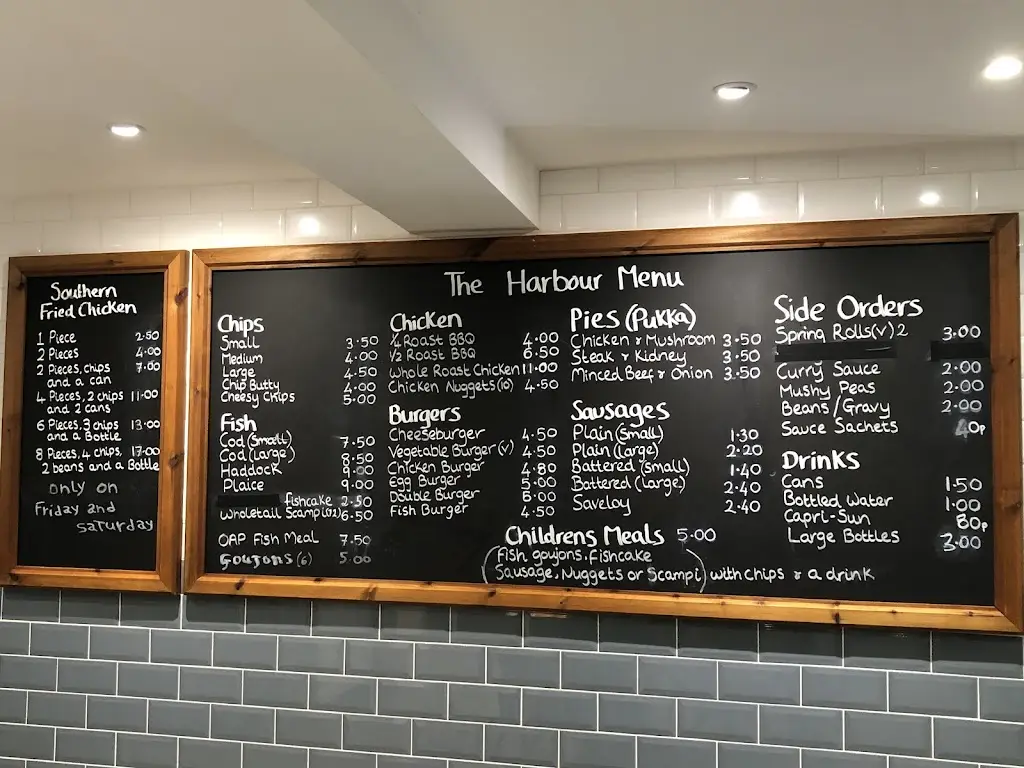 Southern
Fried Chicken
1 Piece 2.50
2 Pieces 4.00
2 Pieces, chips 7.00
and a can
4 Pieces, 2 chips 11.00
and 2 cans
6 Pieces, 3 chips 13.00
and a Bottle
8 Pieces, 4 chips, 17.00
2 beans and a Bottle
only on
Friday and
Saturday
The Harbour Menu
Chips
Small 3.50
Medium 4.00
Large 4.50
Chip Butty 4.00
Cheesy Chips 5.00
Fish
Cod (Small) 7.50
Cod (Large) 8.50
Haddock 9.00
Plaice 9.00
fishcake 2.50
Wholetail Scampi (12) 6.50
OAP Fish Meal 7.50
Goujons (6) 5.00
Chicken
1/4 Roast BBQ 4.00
1/2 Roast BBQ 6.50
Whole Roast Chicken 11.00
Chicken Nuggets (10) 4.50
Burgers
Cheeseburger 4.50
Vegetable Burger (v) 4.50
Chicken Burger 4.80
Egg Burger 5.00
Double Burger 6.00
Fish Burger 4.50
Pies (Pukka)
Chicken & Mushroom 3.50
Steak & Kidney 3.50
Minced Beef & Onion 3.50
Sausages
Plain (small) 1.30
Plain (large) 2.20
Battered (small) 1.40
Battered (large) 2.40
Saveloy 2.40
Childrens Meals 5.00
(Fish goujons, fishcake
Sausage, Nuggets or Scampi) with chips & a drink
Side Orders
Spring Rolls (v) 2 3.00
Curry Sauce 2.00
Mushy Peas 2.00
Beans/Gravy 2.00
Sauce Sachets 40p
Drinks
Cans 1.50
Bottled Water 1.00
Capri-Sun 80p
Large Bottles 3.00